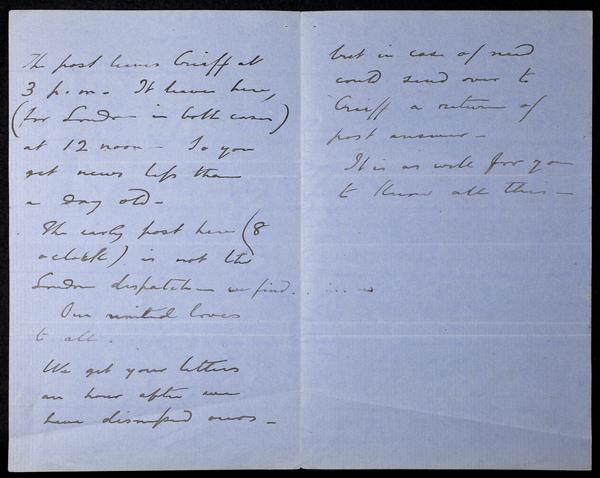 The post leaves Crieff at
3 p.m. It leaves here,
(for London in both cases)
at 12 noon - So you
get news less than
a day old -
The early post here (8
oclock) is not the
London dispatch - we find.
Our united loves
to all.
We get your letters
an hour after we
have dismissed ours -
but in case of need
could send over to
Crieff a return of
post answer -
It is as well for you
to know all this -